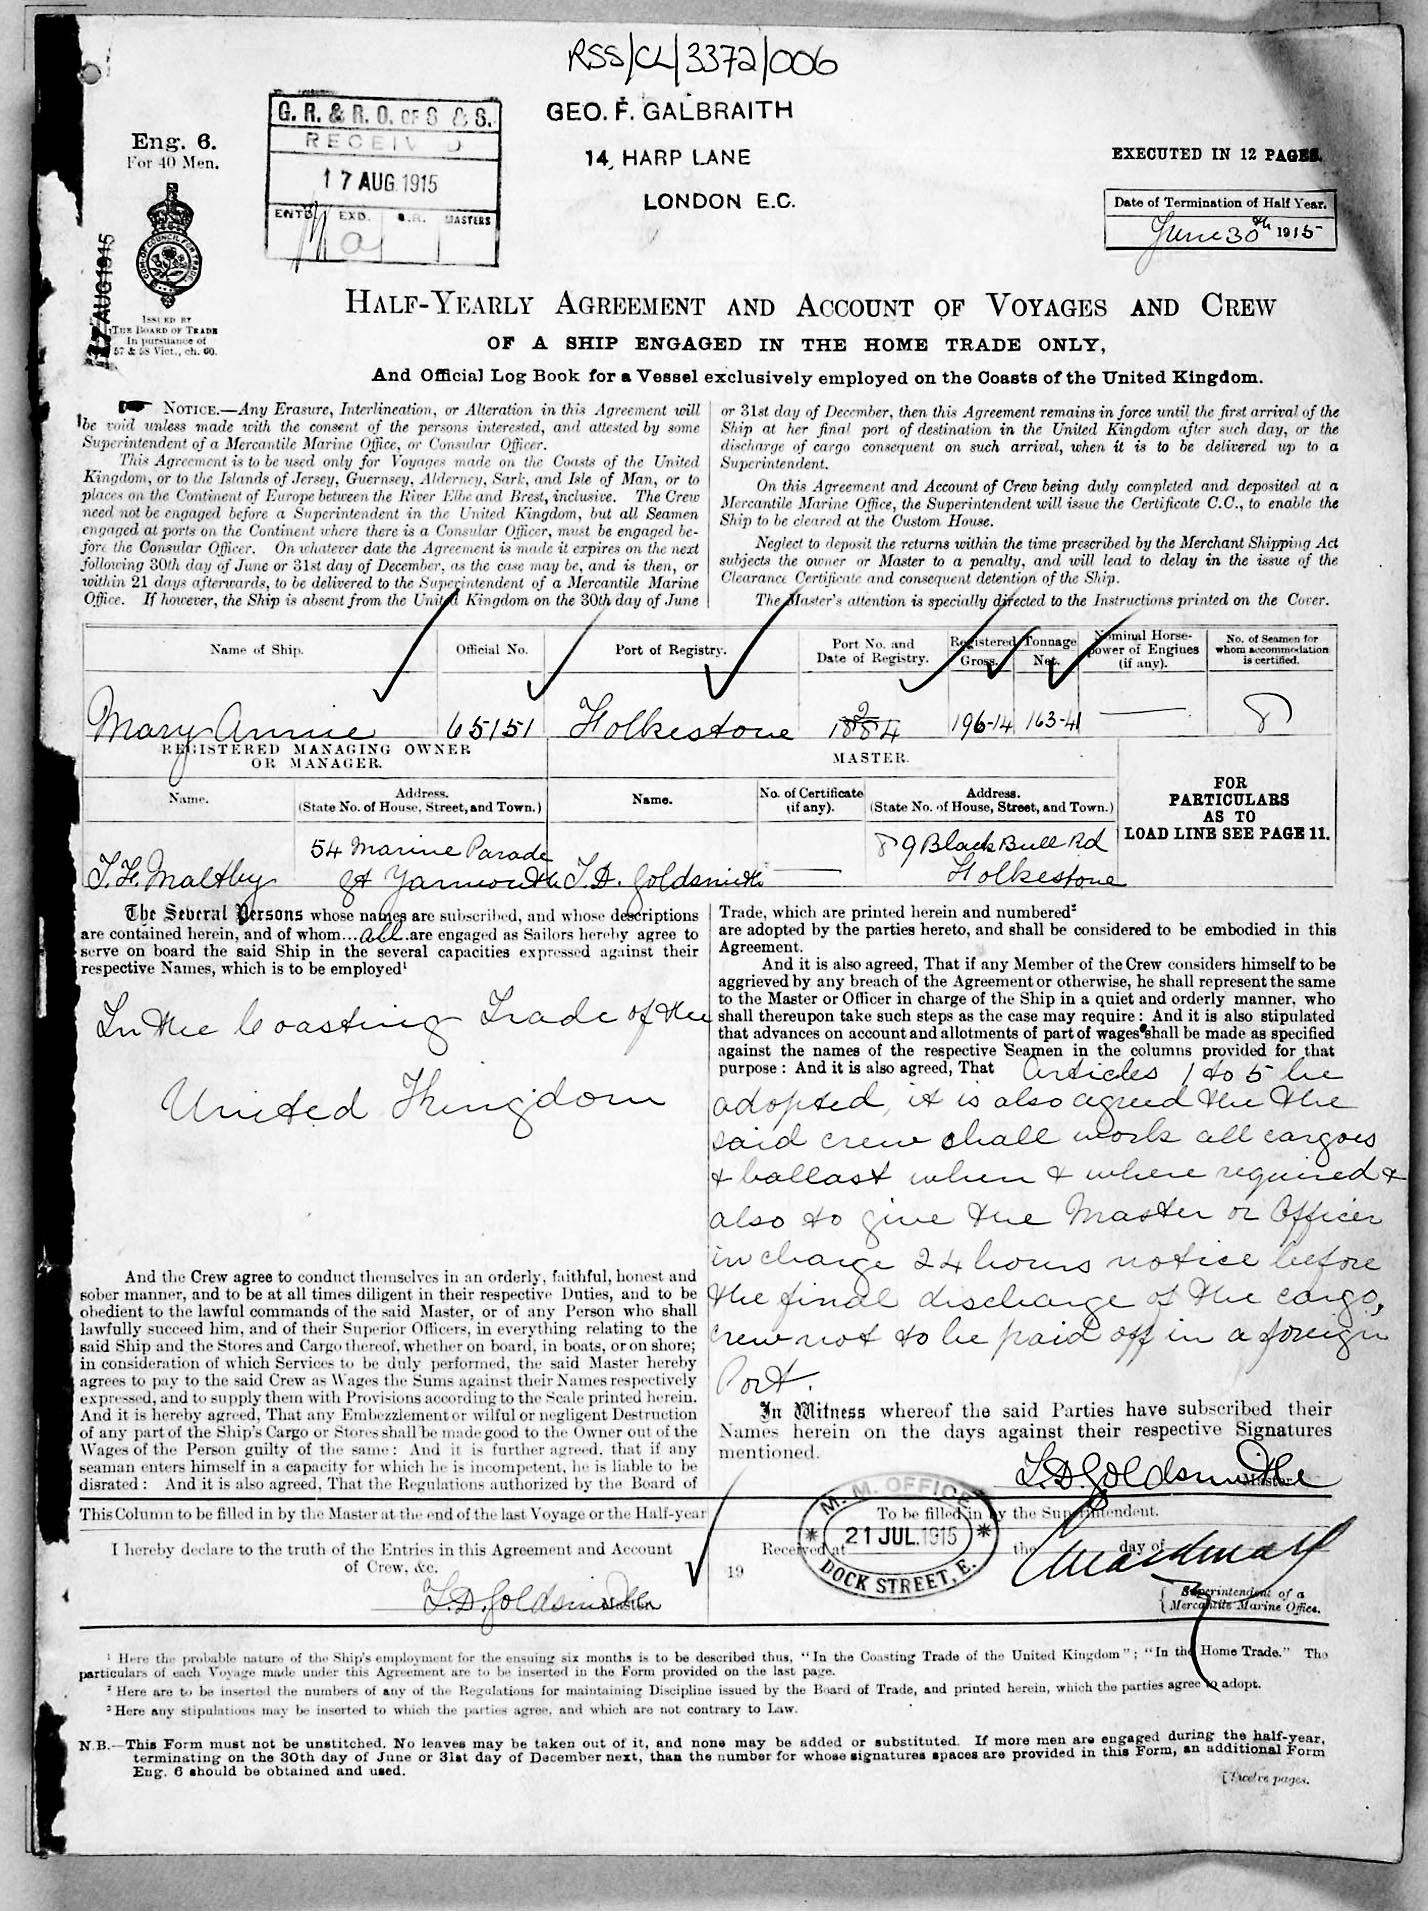 RSS/CL/3372/006
G. R. & R. O. OF S & S.
RECEIVED
17 AUG 1915
ENTD. EXD. MASTERS
GEO. F. GALBRAITH
14, HARP LANE
LONDON E.C.
Eng. 6.
For 40 Men.
EXECUTED IN 12 PAGES.
Date of Termination of Half Year.
June 30th 1915
17 AUG 1915
ISSUED BY
THE BOARD OF TRADE
In pursuance of
57 & 58 Vict., ch. 60.
HALF-YEARLY AGREEMENT AND ACCOUNT OF VOYAGES AND CREW
OF A SHIP ENGAGED IN THE HOME TRADE ONLY,
And Official Log Book for a Vessel exclusively employed on the Coasts of the United Kingdom.
NOTICE.—Any Erasure, Interlineation, or Alteration in this Agreement will
be void unless made with the consent of the persons interested, and attested by some
Superintendent of a Mercantile Marine Office, or Consular Officer.
This Agreement is to be used only for Voyages made on the Coasts of the United
Kingdom, or to the Islands of Jersey, Guernsey, Alderney, Sark, and Isle of Man, or to
places on the Continent of Europe between the River Elbe and Brest, inclusive. The Crew
need not be engaged before a Superintendent in the United Kingdom, but all Seamen
engaged at ports on the Continent where there is a Consular Officer, must be engaged be-
fore the Consular Officer. On whatever date the Agreement is made it expires on the next
following 30th day of June or 31st day of December, as the case may be, and is then, or
within 21 days afterwards, to be delivered to the Superintendent of a Mercantile Marine
Office. If however, the Ship is absent from the United Kingdom on the 30th day of June
or 31st day of December, then this Agreement remains in force until the first arrival of the
Ship at her final port of destination in the United Kingdom after such day, or the
discharge of cargo consequent on such arrival, when it is to be delivered up to a
Superintendent.
On this Agreement and Account of Crew being duly completed and deposited at a
Mercantile Marine Office, the Superintendent will issue the Certificate C.C., to enable the
Ship to be cleared at the Custom House.
Neglect to deposit the returns within the time prescribed by the Merchant Shipping Act
subjects the owner or Master to a penalty, and will lead to delay in the issue of the
Clearance Certificate and consequent detention of the Ship.
The Master's attention is specially directed to the Instructions printed on the Cover.
Name of Ship. Official No. Port of Registry. Port No. and Date of Registry. Registered Tonnage Gross. Net. Nominal Horse-power of Engines (if any). No. of Seamen for whom accommodation is certified.
Mary Annie 65151 Folkestone 2 1884 196-14 163-41 — 8
REGISTERED MANAGING OWNER
OR MANAGER.
MASTER.
Name. Address. (State No. of House, Street, and Town.) Name. No. of Certificate (if any). Address. (State No. of House, Street, and Town.)
FOR
PARTICULARS
AS TO
LOAD LINE SEE PAGE 11.
54 Marine Parade 89 Black Bull Rd
T. H. Maltby Gt Yarmouth T. D. Goldsmith — Folkestone
The Several Persons whose names are subscribed, and whose descriptions
are contained herein, and of whom... all ..are engaged as Sailors hereby agree to
serve on board the said Ship in the several capacities expressed against their
respective Names, which is to be employed¹
In the Coasting Trade of the
United Kingdom
And the Crew agree to conduct themselves in an orderly, faithful, honest and
sober manner, and to be at all times diligent in their respective Duties, and to be
obedient to the lawful commands of the said Master, or of any Person who shall
lawfully succeed him, and of their Superior Officers, in everything relating to the
said Ship and the Stores and Cargo thereof, whether on board, in boats, or on shore;
in consideration of which Services to be duly performed, the said Master hereby
agrees to pay to the said Crew as Wages the Sums against their Names respectively
expressed, and to supply them with Provisions according to the Scale printed herein.
And it is hereby agreed, That any Embezzlement or wilful or negligent Destruction
of any part of the Ship's Cargo or Stores shall be made good to the Owner out of the
Wages of the Person guilty of the same: And it is further agreed, that if any
seaman enters himself in a capacity for which he is incompetent, he is liable to be
disrated: And it is also agreed, That the Regulations authorized by the Board of
Trade, which are printed herein and numbered²
are adopted by the parties hereto, and shall be considered to be embodied in this
Agreement.
And it is also agreed, That if any Member of the Crew considers himself to be
aggrieved by any breach of the Agreement or otherwise, he shall represent the same
to the Master or Officer in charge of the Ship in a quiet and orderly manner, who
shall thereupon take such steps as the case may require: And it is also stipulated
that advances on account and allotments of part of wages shall be made as specified
against the names of the respective Seamen in the columns provided for that
purpose: And it is also agreed, That Articles 1 to 5 be
adopted, it is also agreed the the
said crew shall work all cargoes
& ballast when & where required &
also to give the Master or Officer
in charge 24 hours notice before
the final discharge of the cargo,
crew not to be paid off in a foreign
Port.
In Witness whereof the said Parties have subscribed their
Names herein on the days against their respective Signatures
mentioned.
T. D. Goldsmith Master
This Column to be filled in by the Master at the end of the last Voyage or the Half-year
I hereby declare to the truth of the Entries in this Agreement and Account
of Crew, &c.
T. D. Goldsmith Master
To be filled in by the Superintendent.
Received at the day of
19
M. M. OFFICE
21 JUL. 1915
DOCK STREET, E.
Superintendent of a
Mercantile Marine Office.
¹ Here the probable nature of the Ship's employment for the ensuing six months is to be described thus, "In the Coasting Trade of the United Kingdom"; "In the Home Trade." The
particulars of each Voyage made under this Agreement are to be inserted in the Form provided on the last page.
² Here are to be inserted the numbers of any of the Regulations for maintaining Discipline issued by the Board of Trade, and printed herein, which the parties agree to adopt.
³ Here any stipulations may be inserted to which the parties agree, and which are not contrary to Law.
N.B.—This Form must not be unstitched. No leaves may be taken out of it, and none may be added or substituted. If more men are engaged during the half-year,
terminating on the 30th day of June or 31st day of December next, than the number for whose signatures spaces are provided in this Form, an additional Form
Eng. 6 should be obtained and used.
[Twelve pages.